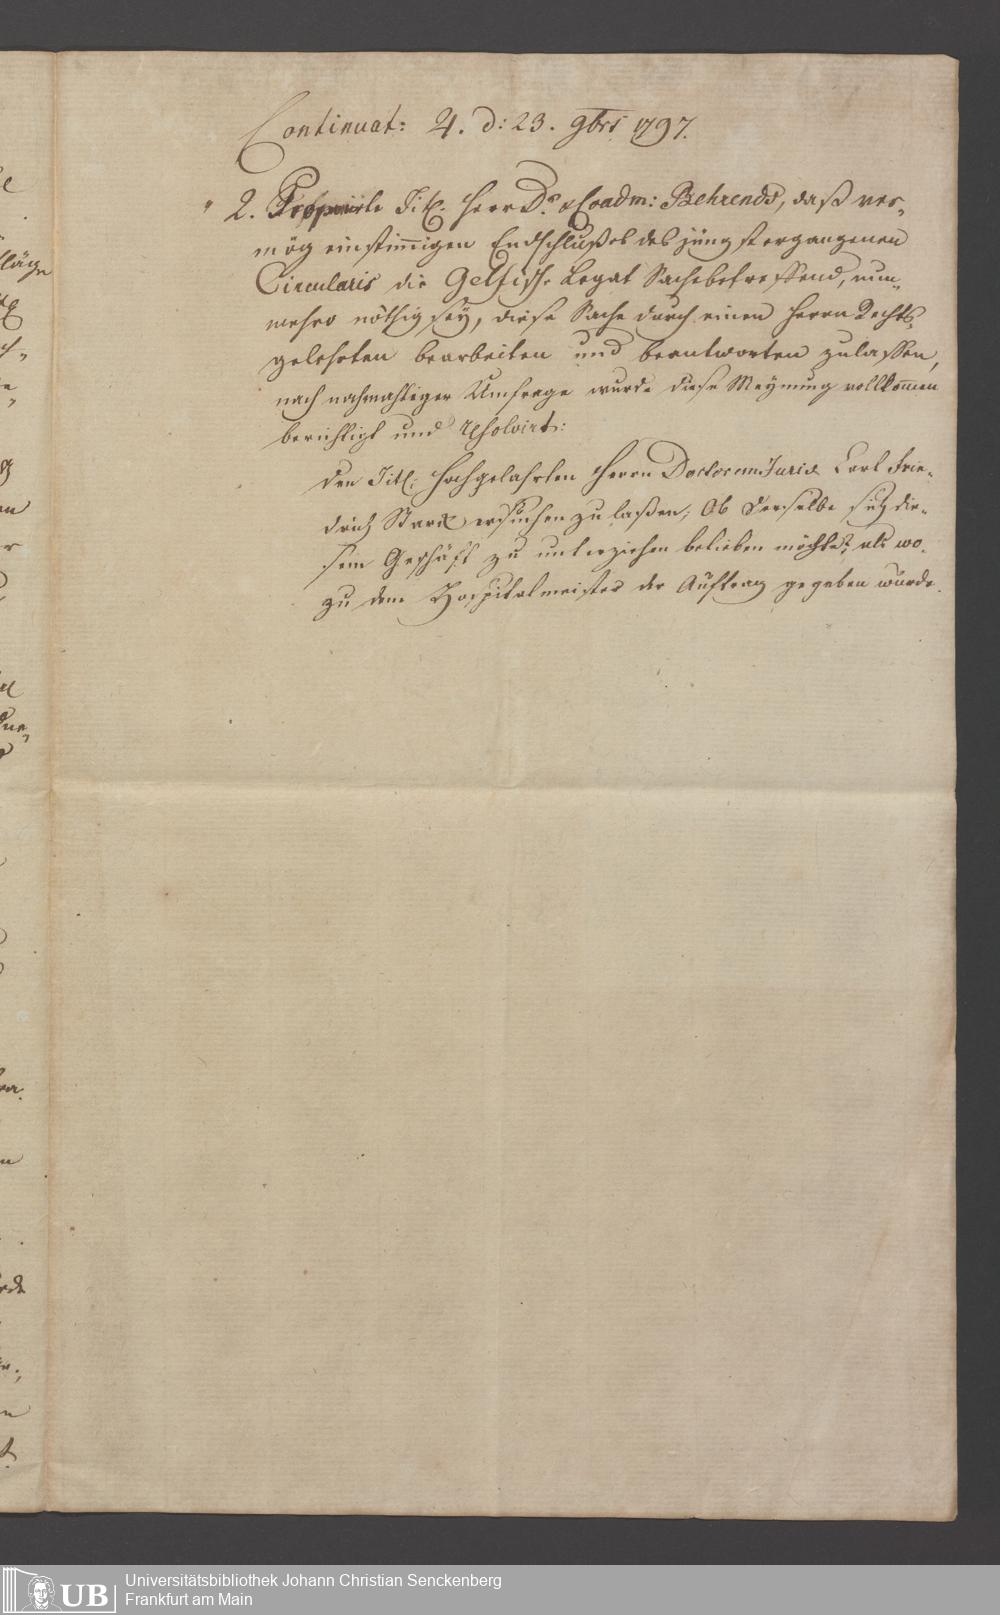 Continuat: 4. d: 23. 9brs 1797.
2. Proponirte Tit. Herr Dr. & Coadm: Behrends, daß ver„
mög einstimmigen Endschlußes des jüngst ergangenen
Circularis die Gelfische Legat Sache betreffend, nun„
mehro nöthig sey, diese Sache durch einen Herrn Rechts„
gelehrten bearbeiten und beantworten zulassen,
nach nochmahliger Umfrage wurde diese Meynung vollkommen
berichtigt und resolvirt:
den Titl. Hochgelahrten Herrn Doctorem Juris Carl Frie„
drich Starck ersuchen zu laßen; Ob Derselbe sich die„
sem Geschäft zu unterziehen belieben möchte? als wo„
zu dem Hospitalmeister der Auftrag gegeben wurde.
UB
Universitätsbibliothek Johann Christian Senckenberg
Frankfurt am Main